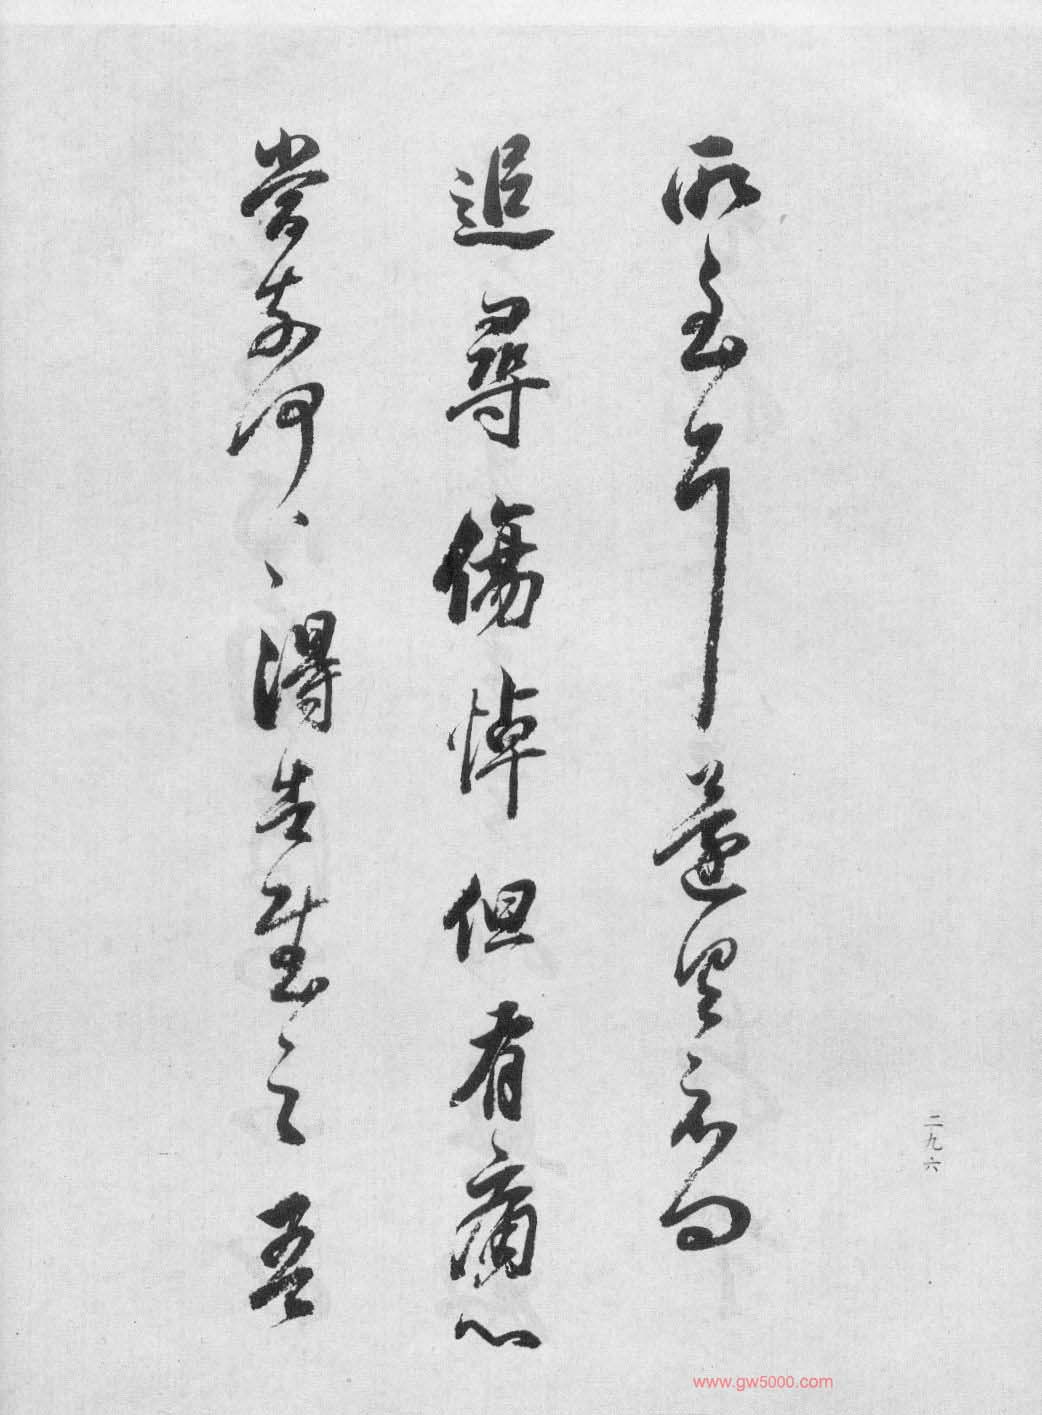 所至耳
追尋傷悼但有痛心
當奈何、、得告慰之吾
二九六
www.gw5000.com